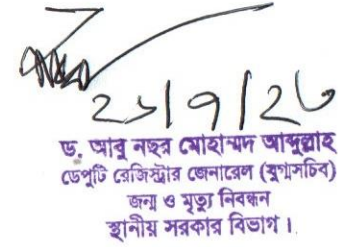 ড. আবু নছর মোহাম্মদ আব্দুল্লাহ
ডেপুটি রেজিস্ট্রার জেনারেল (যুগ্মসচিব)
জন্ম ও মৃত্যু নিবন্ধন
স্থানীয় সরকার বিভাগ।